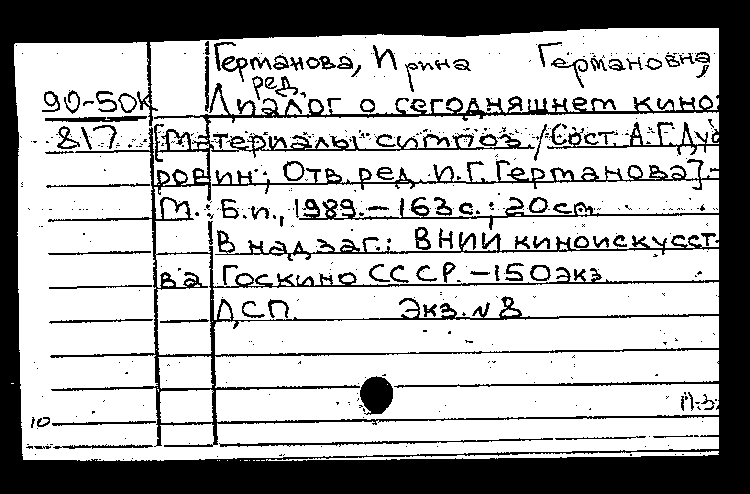 Германова, Ирина Германовна,
ред.
90-50к Диалог о сегодняшнем кино:
817 [Материалы симпоз. / Сост. А.Г.Дуб
ровин; Отв. ред. И.Г.Германова] -
М.: Б.и., 1989. - 163 с.; 20 см
В надзаг.: ВНИИ киноискусст-
ва Госкино СССР. - 150 экз.
ДСП. Экз. № 8
10